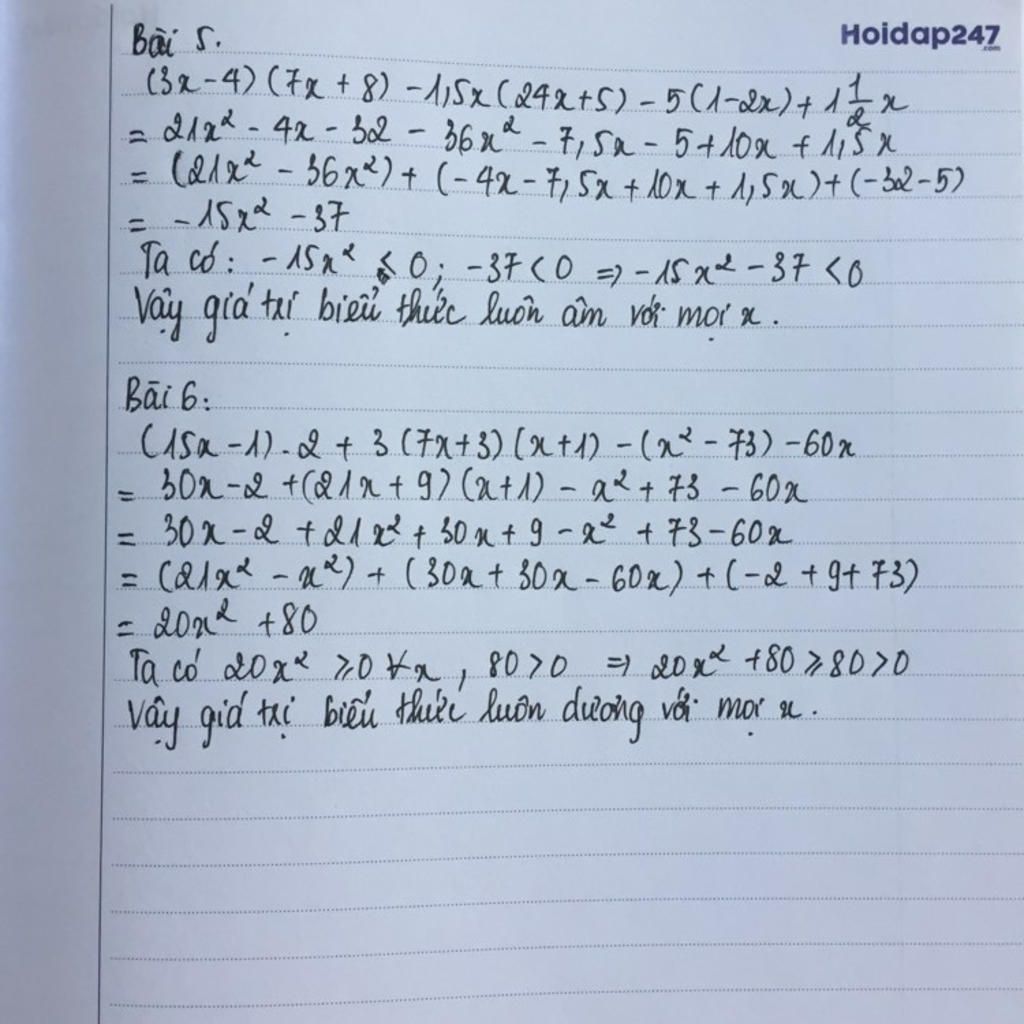 Hoidap247
.com
Bài 5.
(3x-4)(7x+8) - 1,5x(24x+5) - 5(1-2x) + 1 1/2 x
= 21x² - 4x - 32 - 36x² - 7,5x - 5 + 10x + 1,5x
= (21x² - 36x²) + (-4x - 7,5x + 10x + 1,5x) + (-32 - 5)
= -15x² - 37
Ta có: -15x² ≤ 0; -37 < 0 ⇒ -15x² - 37 < 0
Vậy giá trị biểu thức luôn âm với mọi x.
Bài 6:
(15x - 1).2 + 3(7x+3)(x+1) - (x² - 73) - 60x
= 30x - 2 + (21x + 9)(x+1) - x² + 73 - 60x
= 30x - 2 + 21x² + 30x + 9 - x² + 73 - 60x
= (21x² - x²) + (30x + 30x - 60x) + (-2 + 9 + 73)
= 20x² + 80
Ta có 20x² ≥ 0 ∀x, 80 > 0 ⇒ 20x² + 80 ≥ 80 > 0
Vậy giá trị biểu thức luôn dương với mọi x.